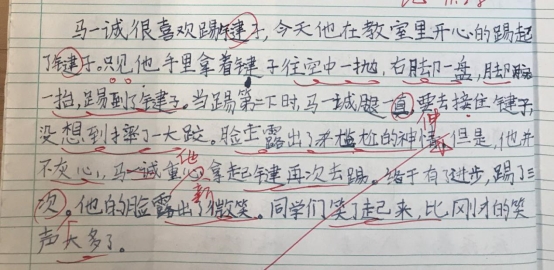 马一诚很喜欢踢毽子，今天他在教室里开心的踢起
了毽子。只见他手里拿着毽子往空中一抛，右脚一盘，脚
一抬，踢到了毽子。当踢第二下时，马一诚腿一直，要去接住毽子，
没想到摔了一大跤。脸走露出了尴尬的神情，但是，他并
不灰心，马一诚重心拿起毽再次去踢。终于有了进步，踢了三
次。他的脸露出了微笑。同学们笑了起来，比刚才的笑
声大多了。
他
新
伸